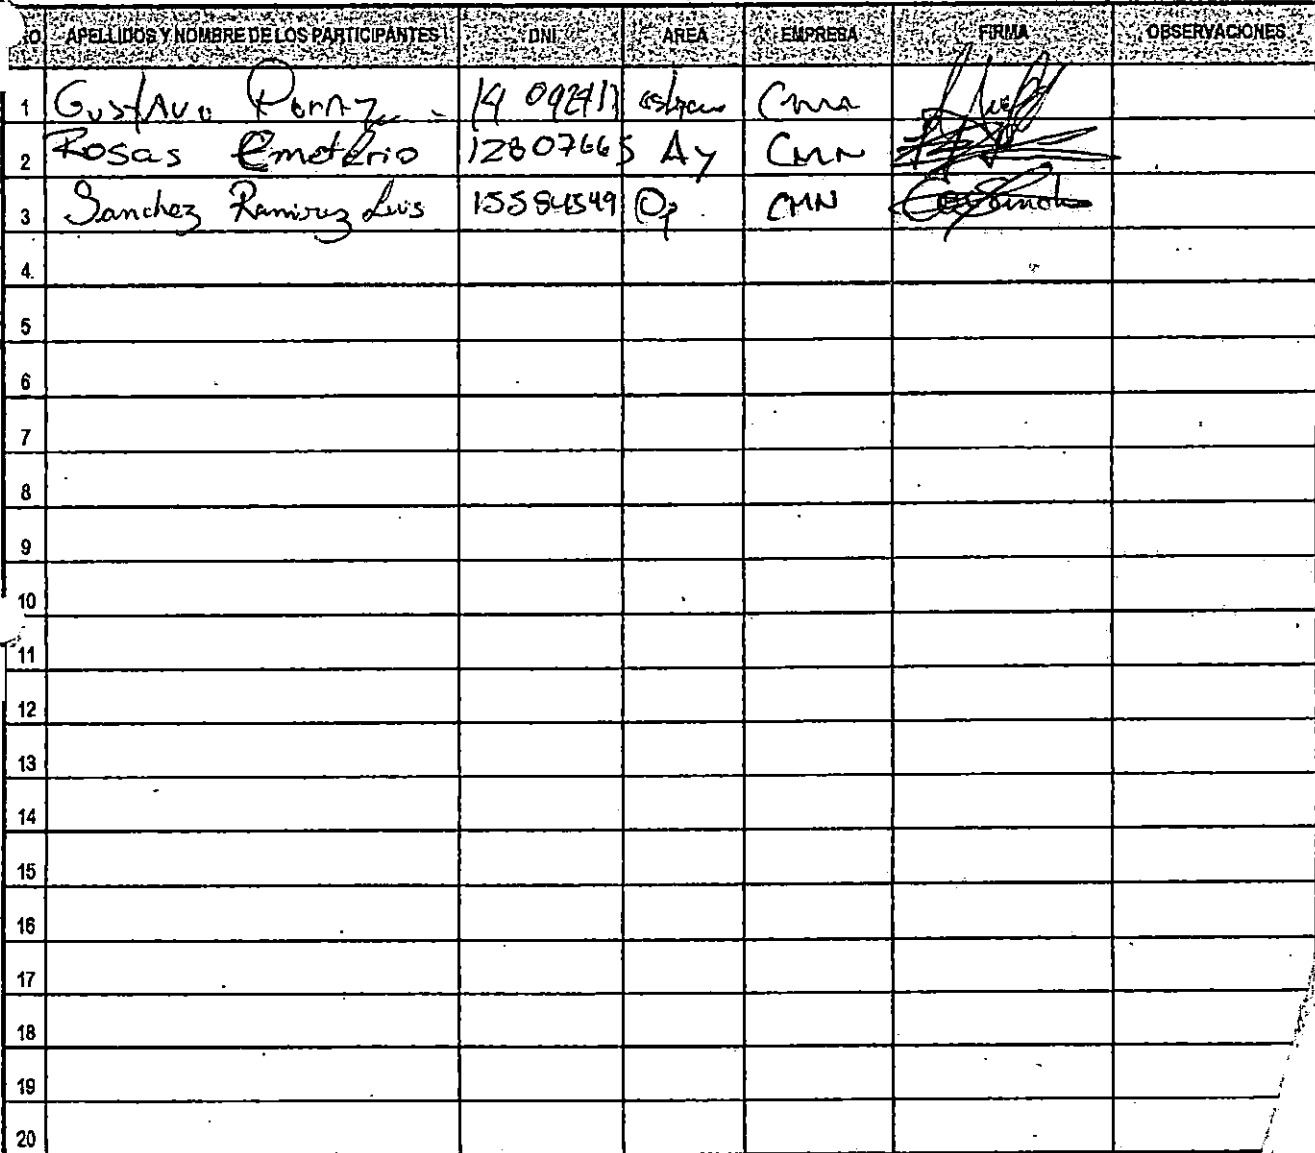 APELLIDOS Y NOMBRE DE LOS PARTICIPANTES DNI AREA EMPRESA FIRMA OBSERVACIONES
1 Gustavo
2 Rosas Emeterio 12807665 Ay CMN
3 Sanchez Ramirez Luis 15584549 Op CMN
4
5
6
7
8
9
10
11
12
13
14
15
16
17
18
19
20